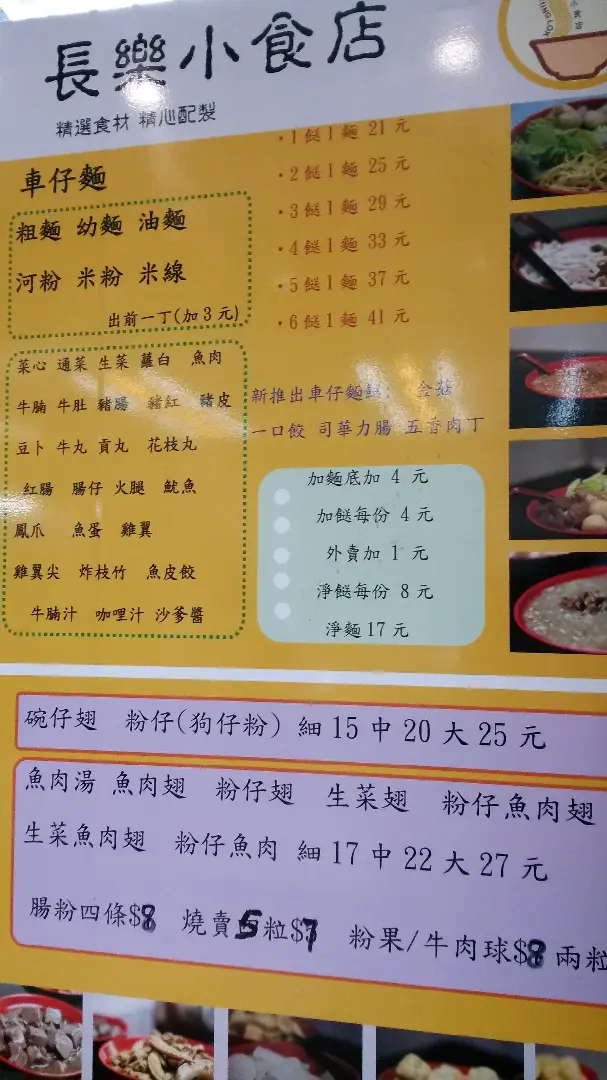 長樂小食店
精選食材 精心配製
車仔麵
粗麵 幼麵 油麵
河粉 米粉 米線
出前一丁(加3元)
菜心 通菜 生菜 蘿白 魚肉
牛腩 牛肚 豬腸 豬紅 豬皮
豆卜 牛丸 貢丸 花枝丸
紅腸 腸仔 火腿 魷魚
鳳爪 魚蛋 雞翼
雞翼尖 炸枝竹 魚皮餃
牛腩汁 咖哩汁 沙爹醬
・1餸1麵 21元
・2餸1麵 25元
・3餸1麵 29元
・4餸1麵 33元
・5餸1麵 37元
・6餸1麵 41元
新推出車仔麵餸: 金菇
一口餃 司華力腸 五香肉丁
加麵底加 4 元
加餸每份 4 元
外賣加 1 元
淨餸每份 8 元
淨麵17元
碗仔翅 粉仔(狗仔粉) 細15中20大25元
魚肉湯 魚肉翅 粉仔翅 生菜翅 粉仔魚肉翅
生菜魚肉翅 粉仔魚肉 細17中22大27元
腸粉四條$8 燒賣5粒$7 粉果/牛肉球$8兩粒